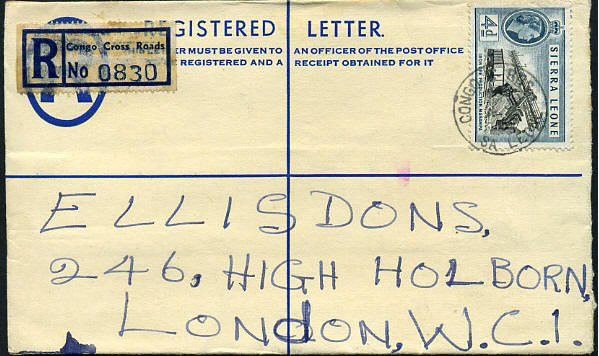 REGISTERED LETTER.
ER MUST BE GIVEN TO AN OFFICER OF THE POST OFFICE
E REGISTERED AND A RECEIPT OBTAINED FOR IT
R Congo Cross Roads
No 0830
4d
SIERRA LEONE
CONGO
SA. LEO
ELLISDONS,
246, HIGH HOLBORN,
LONDON, W.C.1.